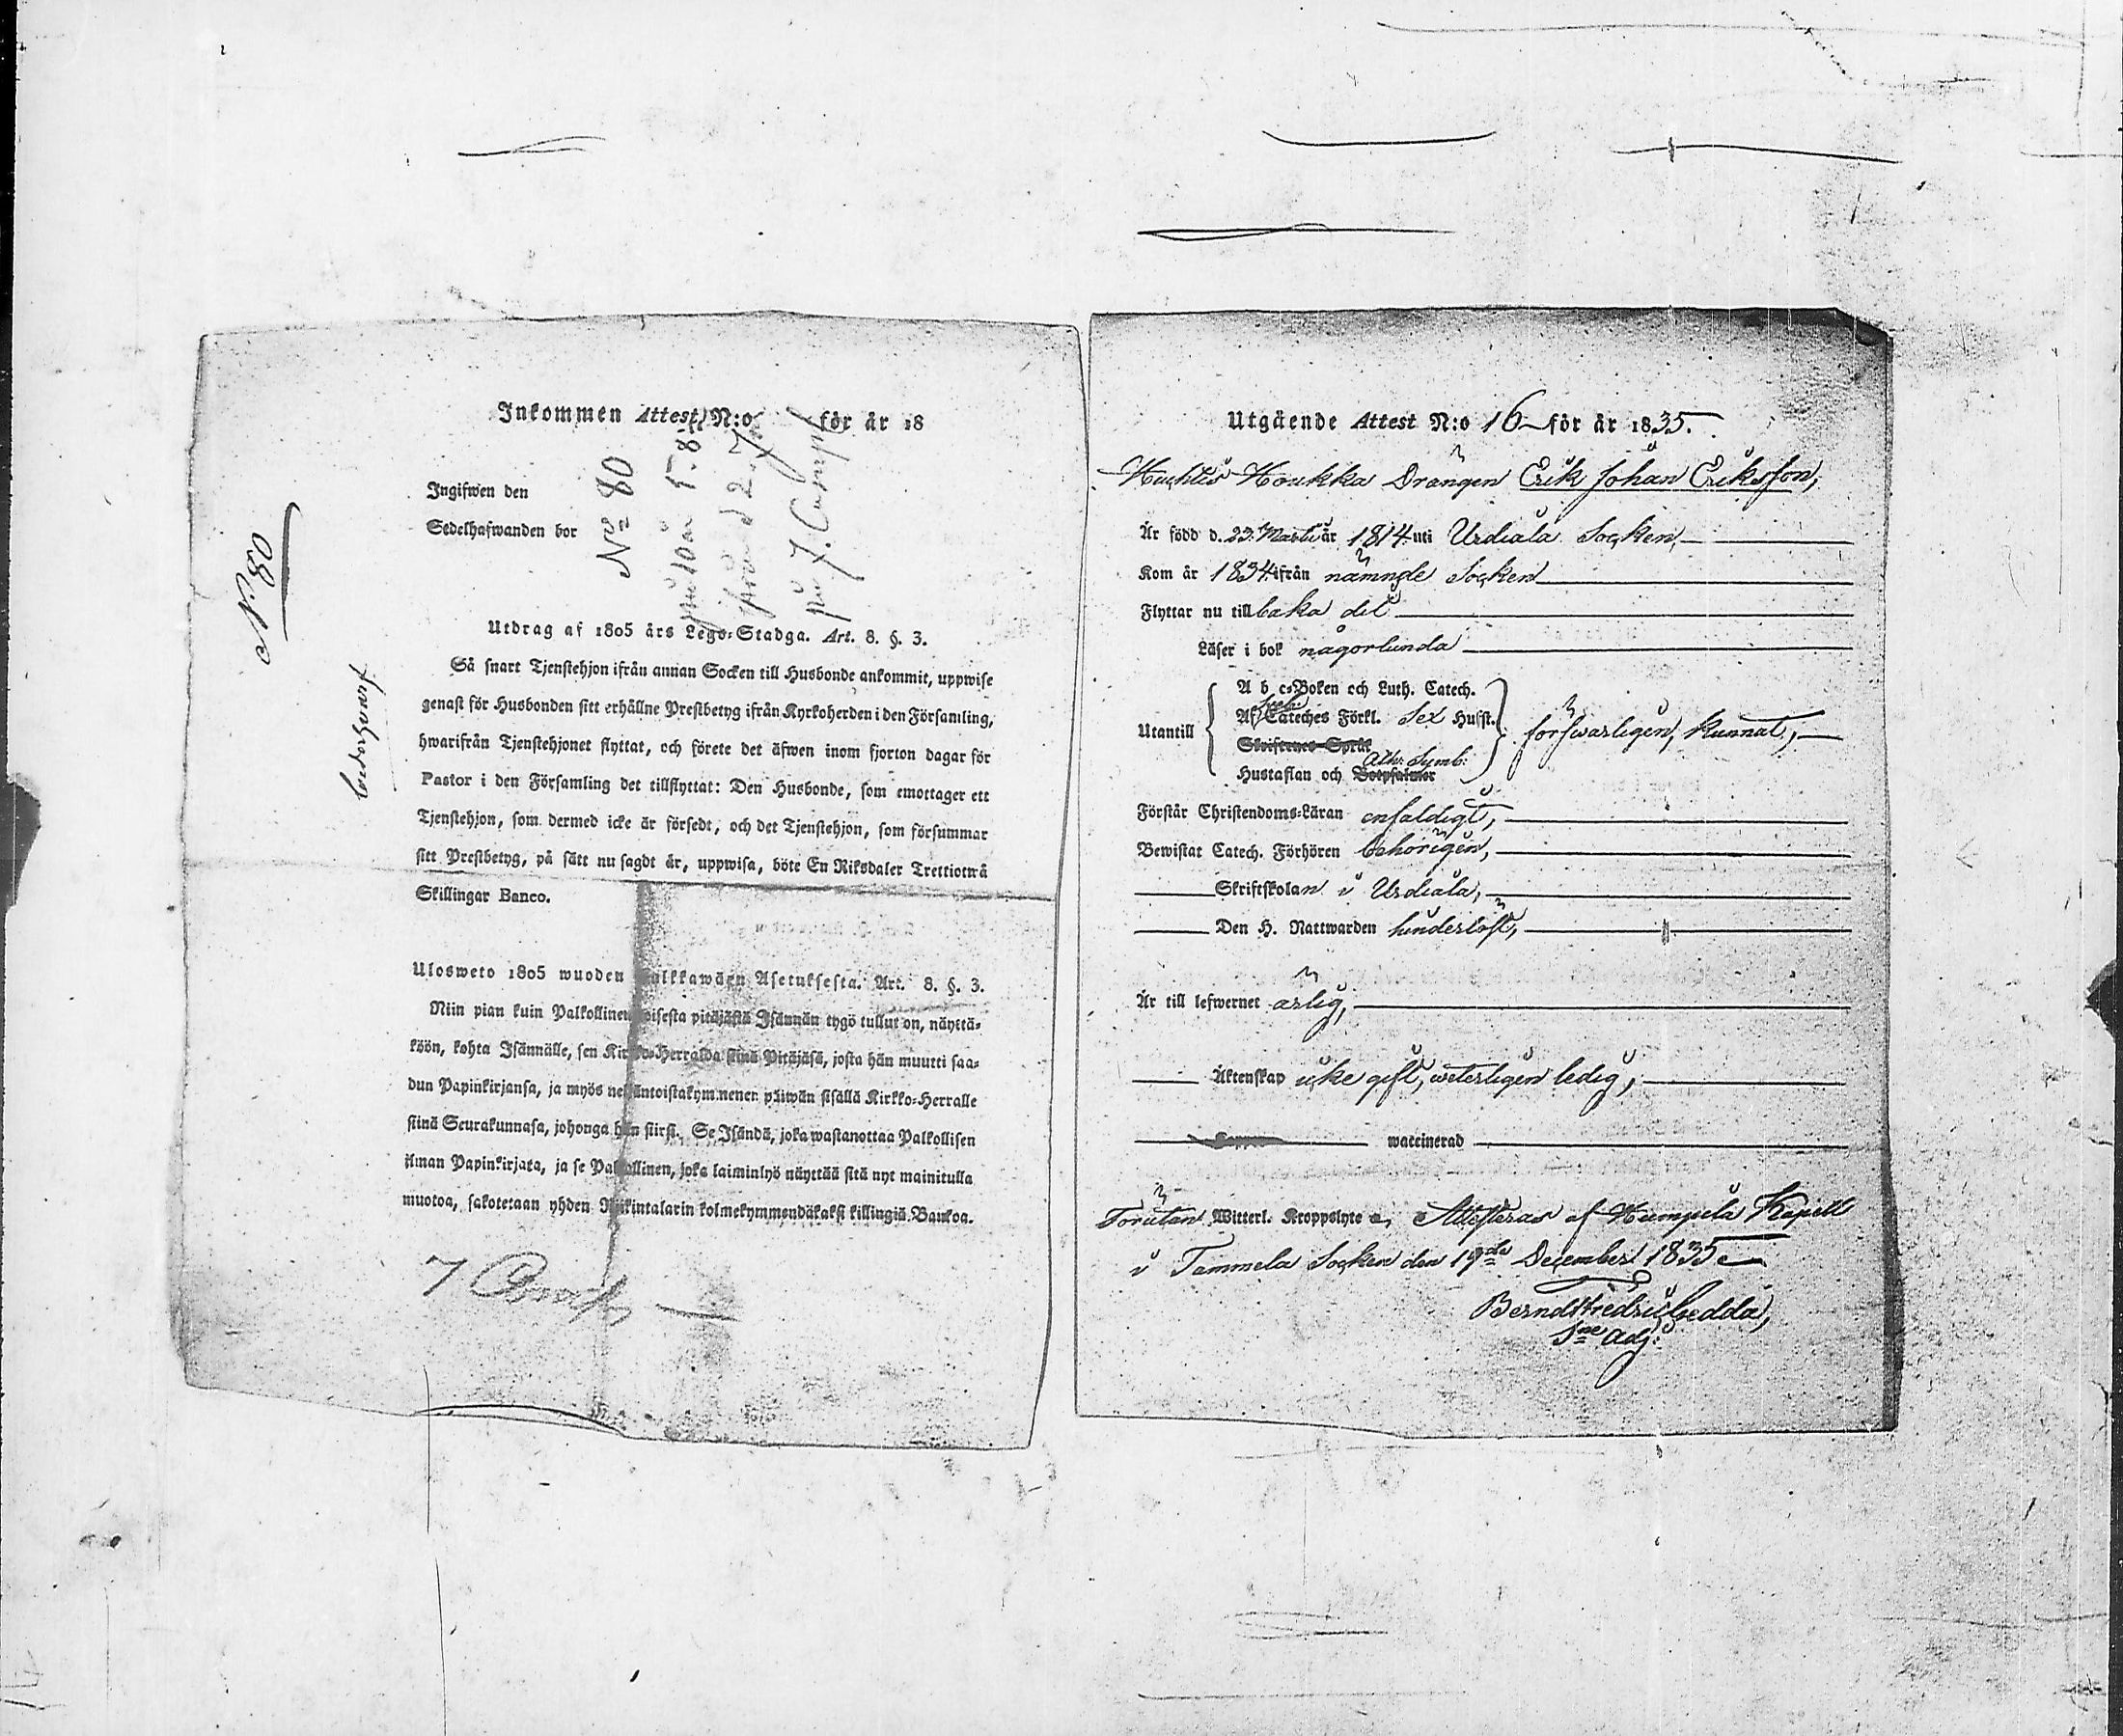 Inkommen Attest N:o för år 18
Ingifwen den
Sedelhafwanden bor
No 80
N 80
Utdrag af 1805 års Lego-Stadga. Art. 8. §. 3.
Så snart Tjenstehjon ifrån annan Socken till Husbonde ankommit, uppwise
genast för Husbonden sitt erhållne Prestbetyg ifrån Kyrkoherden i den Församling,
hwarifrån Tjenstehjonet flyttat, och förete det äfwen inom fjorton dagar för
Pastor i den Församling det tillflyttat: Den Husbonde, som emottager ett
Tjenstehjon, som dermed icke är försedt, och det Tjenstehjon, som försummar
sitt Prestbetyg, på sätt nu sagdt är, uppwisa, böte En Riksdaler Trettiotwå
Skillingar Banco.
Ulosweto 1805 wuoden Palkkawäen Asetuksesta. Art. 8. §. 3.
Niin pian kuin Palkollinen toisesta pitäjästä Isännän tygö tullut on, näyttä-
köön, kohta Isännälle, sen Kirkko-Herralda siinä Pitäjäsä, josta hän muutti saa-
dun Papinkirjansa, ja myös neljäntoistakymmenen päiwän sisällä Kirkko-Herralle
siinä Seurakunnasa, johonga hän siirsi. Se Isändä, joka wastanottaa Palkollisen
ilman Papinkirjata, ja se Palkollinen, joka laiminlyö näyttää sitä nyt mainitulla
muotoa, sakotetaan yhden Riikintalarin kolmekymmendäkaksi killingiä Bankoa.
Utgående Attest N:o 16 för år 1835.
Houkka Drängen Erik Johan Eriksson,
Är född d. 23. Martii år 1814 uti Urdiala Socken,
Kom år 1834 ifrån nämnde Socken
Flyttar nu till baka dit
Läser i bok någorlunda
A b c-Boken och Luth. Catech.
Af Sveb: Cateches Förkl. Sex Hufst.
Utantill
försvarligen kunnat,
Skriftenes Språk
Ath: Symb:
Hustaflan och Botpsalmer
Förstår Christendoms-Läran enfaldigt,
Bewistat Catech. Förhören behörigen,
Skriftskolan i Urdiala,
Den H. Nattwarden hinderlöst,
Är till lefwernet ärlig,
Äktenskap icke gift, veterligen ledig,
waccinerad
Förutan Witterl. Kroppslyte Attesteras af Humpila Kapell
i Tammela Socken den 19de December 1835
Berndt Fredric Gedda,
Sne Adj: